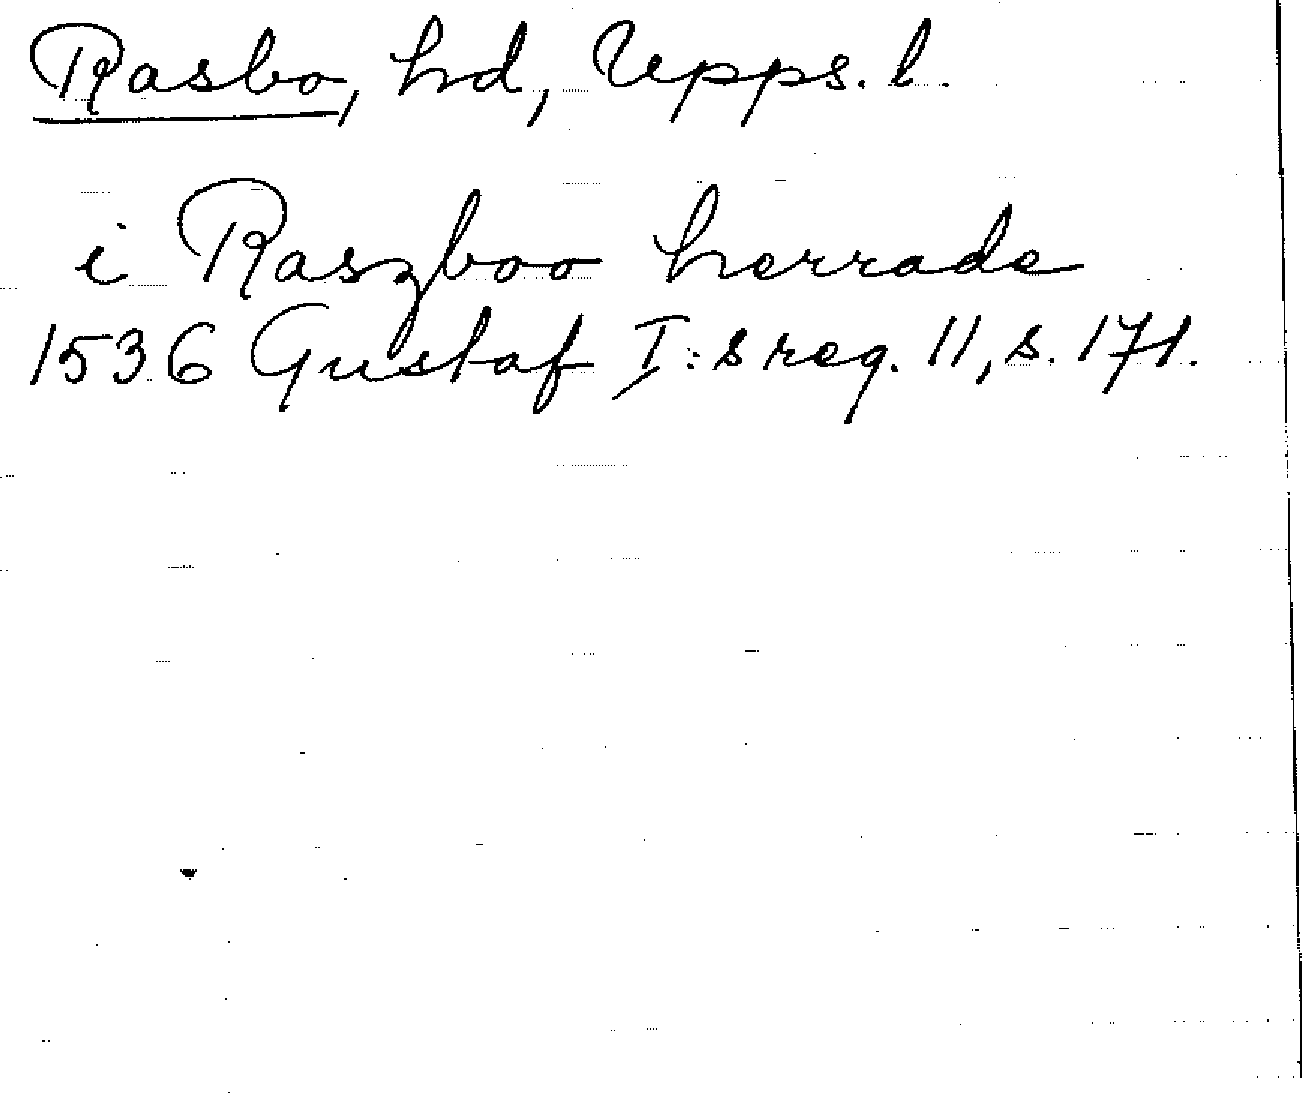 Rasbo, hd, Upps. l.
i Raszboo herrade
1536 Gustaf I:s reg. 11, s. 171.